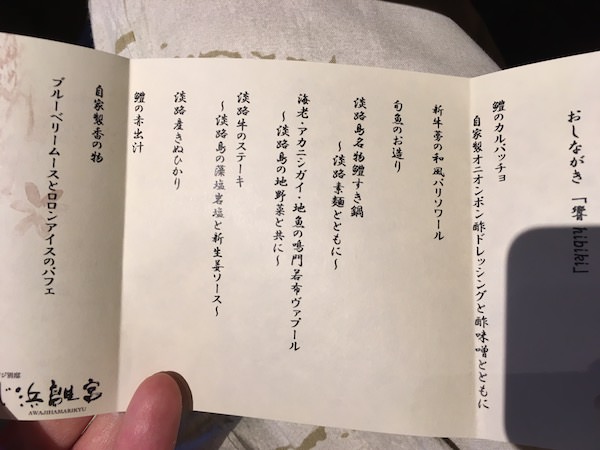 おしながき 「響 hibiki」
鱧のカルパッチョ
自家製オニオンポン酢ドレッシングと酢味噌とともに
新牛蒡の和風パリソワール
旬魚のお造り
淡路島名物鱧すき鍋
～淡路素麺とともに～
海老・アカニシガイ・地魚の鳴門若布ヴァプール
～淡路島の地野菜と共に～
淡路牛のステーキ
～淡路島の藻塩岩塩と新生姜ソース～
淡路産きぬひかり
鱧の赤出汁
自家製香の物
ブルーベリームースとロロンアイスのパフェ
AWAJIHAMARIKYU